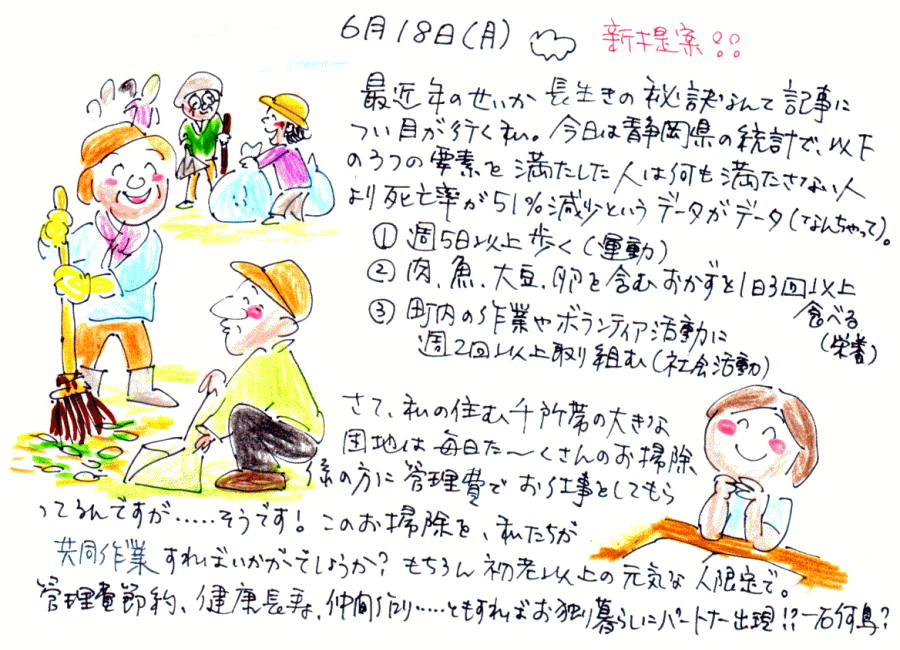 6月18日(月) 新提案!!
最近年のせいか長生きの秘訣なんて記事に
つい目が行く私。今日は静岡県の統計で、以下
の3つの要素を満たした人は何も満たさない人
より死亡率が51%減少というデータがデータ(なんちゃって)。
① 週5日以上歩く(運動)
② 肉、魚、大豆、卵を含むおかずを1日3回以上
食べる
(栄養)
③ 町内の作業やボランティア活動に
週2回以上取り組む(社会活動)
さて、私の住む千所帯の大きな
団地は毎日た〜くさんのお掃除
係の方に管理費でお仕事としてもら
ってるんですが……そうです!このお掃除を、私たちが
共同作業すればいかがでしょうか?もちろん初老以上の元気な人限定で。
管理費節約、健康長寿、仲間作り……ともすればお独り暮らしにパートナー出現!?一石何鳥?